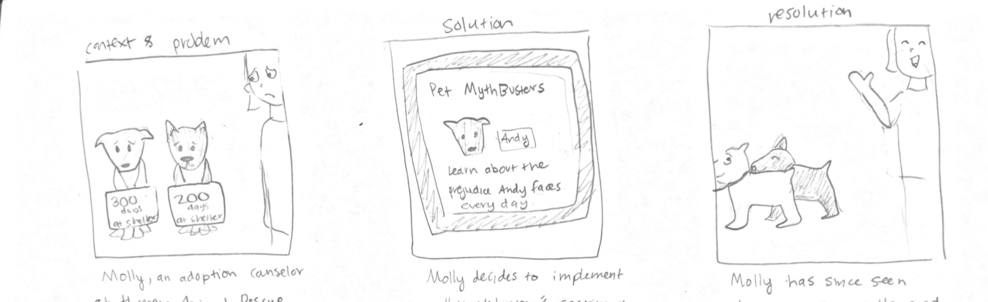 context & problem
300
days
at shelter
200
days
at shelter
Molly, an adoption counselor
solution
Pet MythBusters
Andy
Learn about the
prejudice Andy faces
every day.
Molly decides to implement
resolution
Molly has since seen